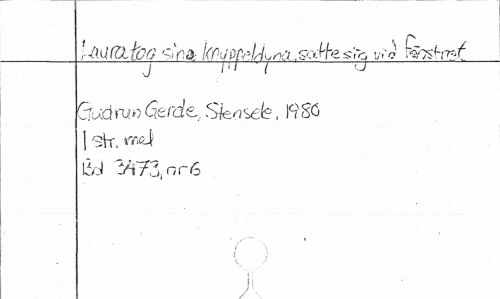 Laura tog sina knyppeldyna, satte sig vid fönstret
Gudrun Gerde, Stensele, 1980
1 str. mel
Bd 3473, nr 6